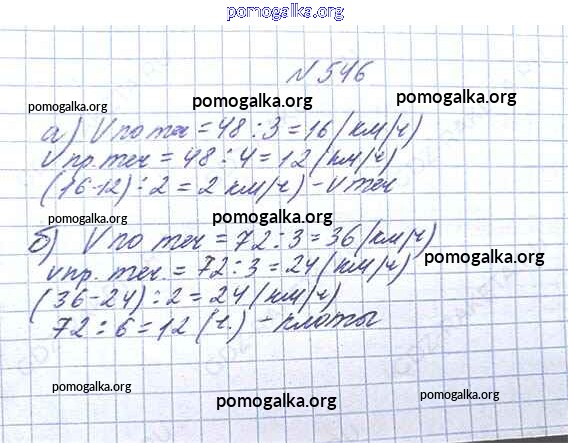 pomogalka.org
N 546
pomogalka.org pomogalka.org pomogalka.org
а) V по теч = 48 : 3 = 16 (км/ч)
Vпр. теч = 48 : 4 = 12 (км/ч)
(16-12) : 2 = 2 км/ч) - V теч
pomogalka.org pomogalka.org
б) V по теч = 72 : 3 = 36 (км/ч)
vпр. теч. = 72 : 3 = 24 (км/ч)
pomogalka.org
(36-24) : 2 = 24 (км/ч)
72 : 6 = 12 (ч.) - плоты
pomogalka.org pomogalka.org pomogalka.org